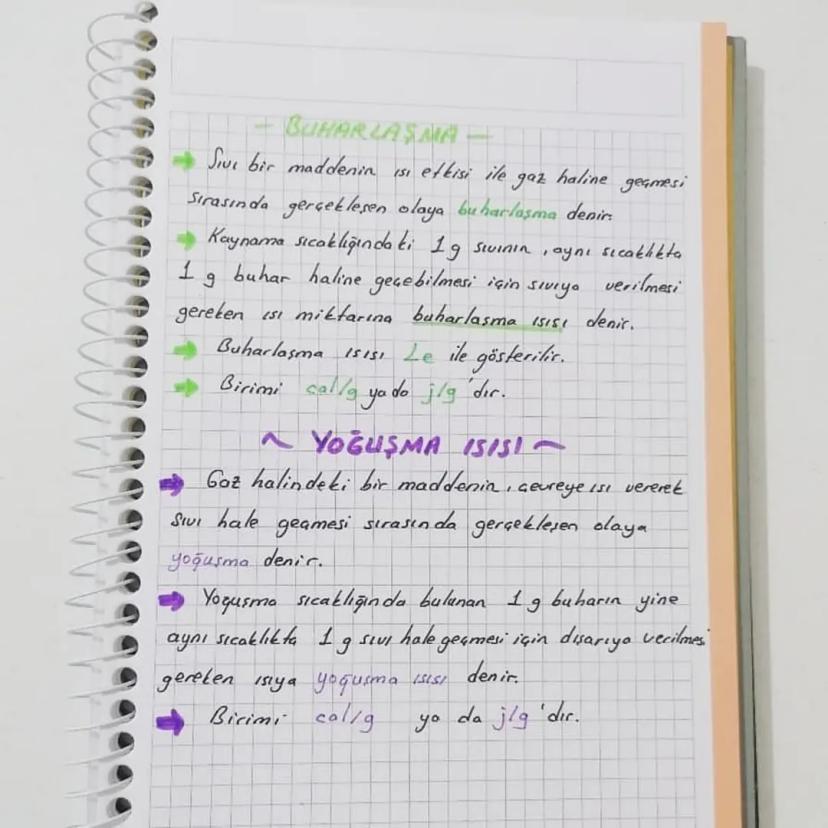 - BUHARLAŞMA -
Sıvı bir maddenin ısı etkisi ile gaz haline geçmesi
sırasında gerçekleşen olaya buharlaşma denir.
Kaynama sıcaklığındaki 1g sıvının, aynı sıcaklıkta
1 g buhar haline geçebilmesi için sıvıya verilmesi
gereken ısı miktarına buharlaşma ısısı denir.
Buharlaşma ısısı Le ile gösterilir.
Birimi cal/g ya da j/g'dır.
~ YOĞUŞMA ISISI ~
Gaz halindeki bir maddenin, çevreye ısı vererek
sıvı hale geçmesi sırasında gerçekleşen olaya
yoğuşma denir.
Yoğuşma sıcaklığında bulunan 1 g buharın yine
aynı sıcaklıkta 1 g sıvı hale geçmesi için dışarıya verilmesi
gereken ısıya yoğuşma ısısı denir.
Birimi cal/g ya da j/g'dır.